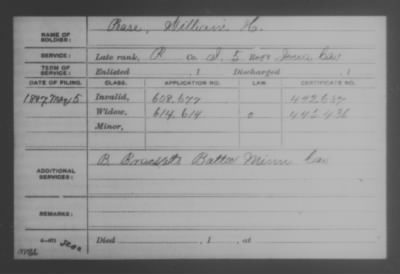 NAME OF SOLDIER: Rase, William H.
SERVICE: Late rank, P Co. I, 5 Reg't Iowa Cav
TERM OF SERVICE: Enlisted , 1 Discharged , 1
DATE OF FILING. CLASS. APPLICATION NO. LAW. CERTIFICATE NO.
1887 May 5 Invalid, 608.677
Widow, 614.614 445.436
Minor,
ADDITIONAL SERVICES: B Brackett's Batt'n Minn Cav
REMARKS:
Died , 1 , at